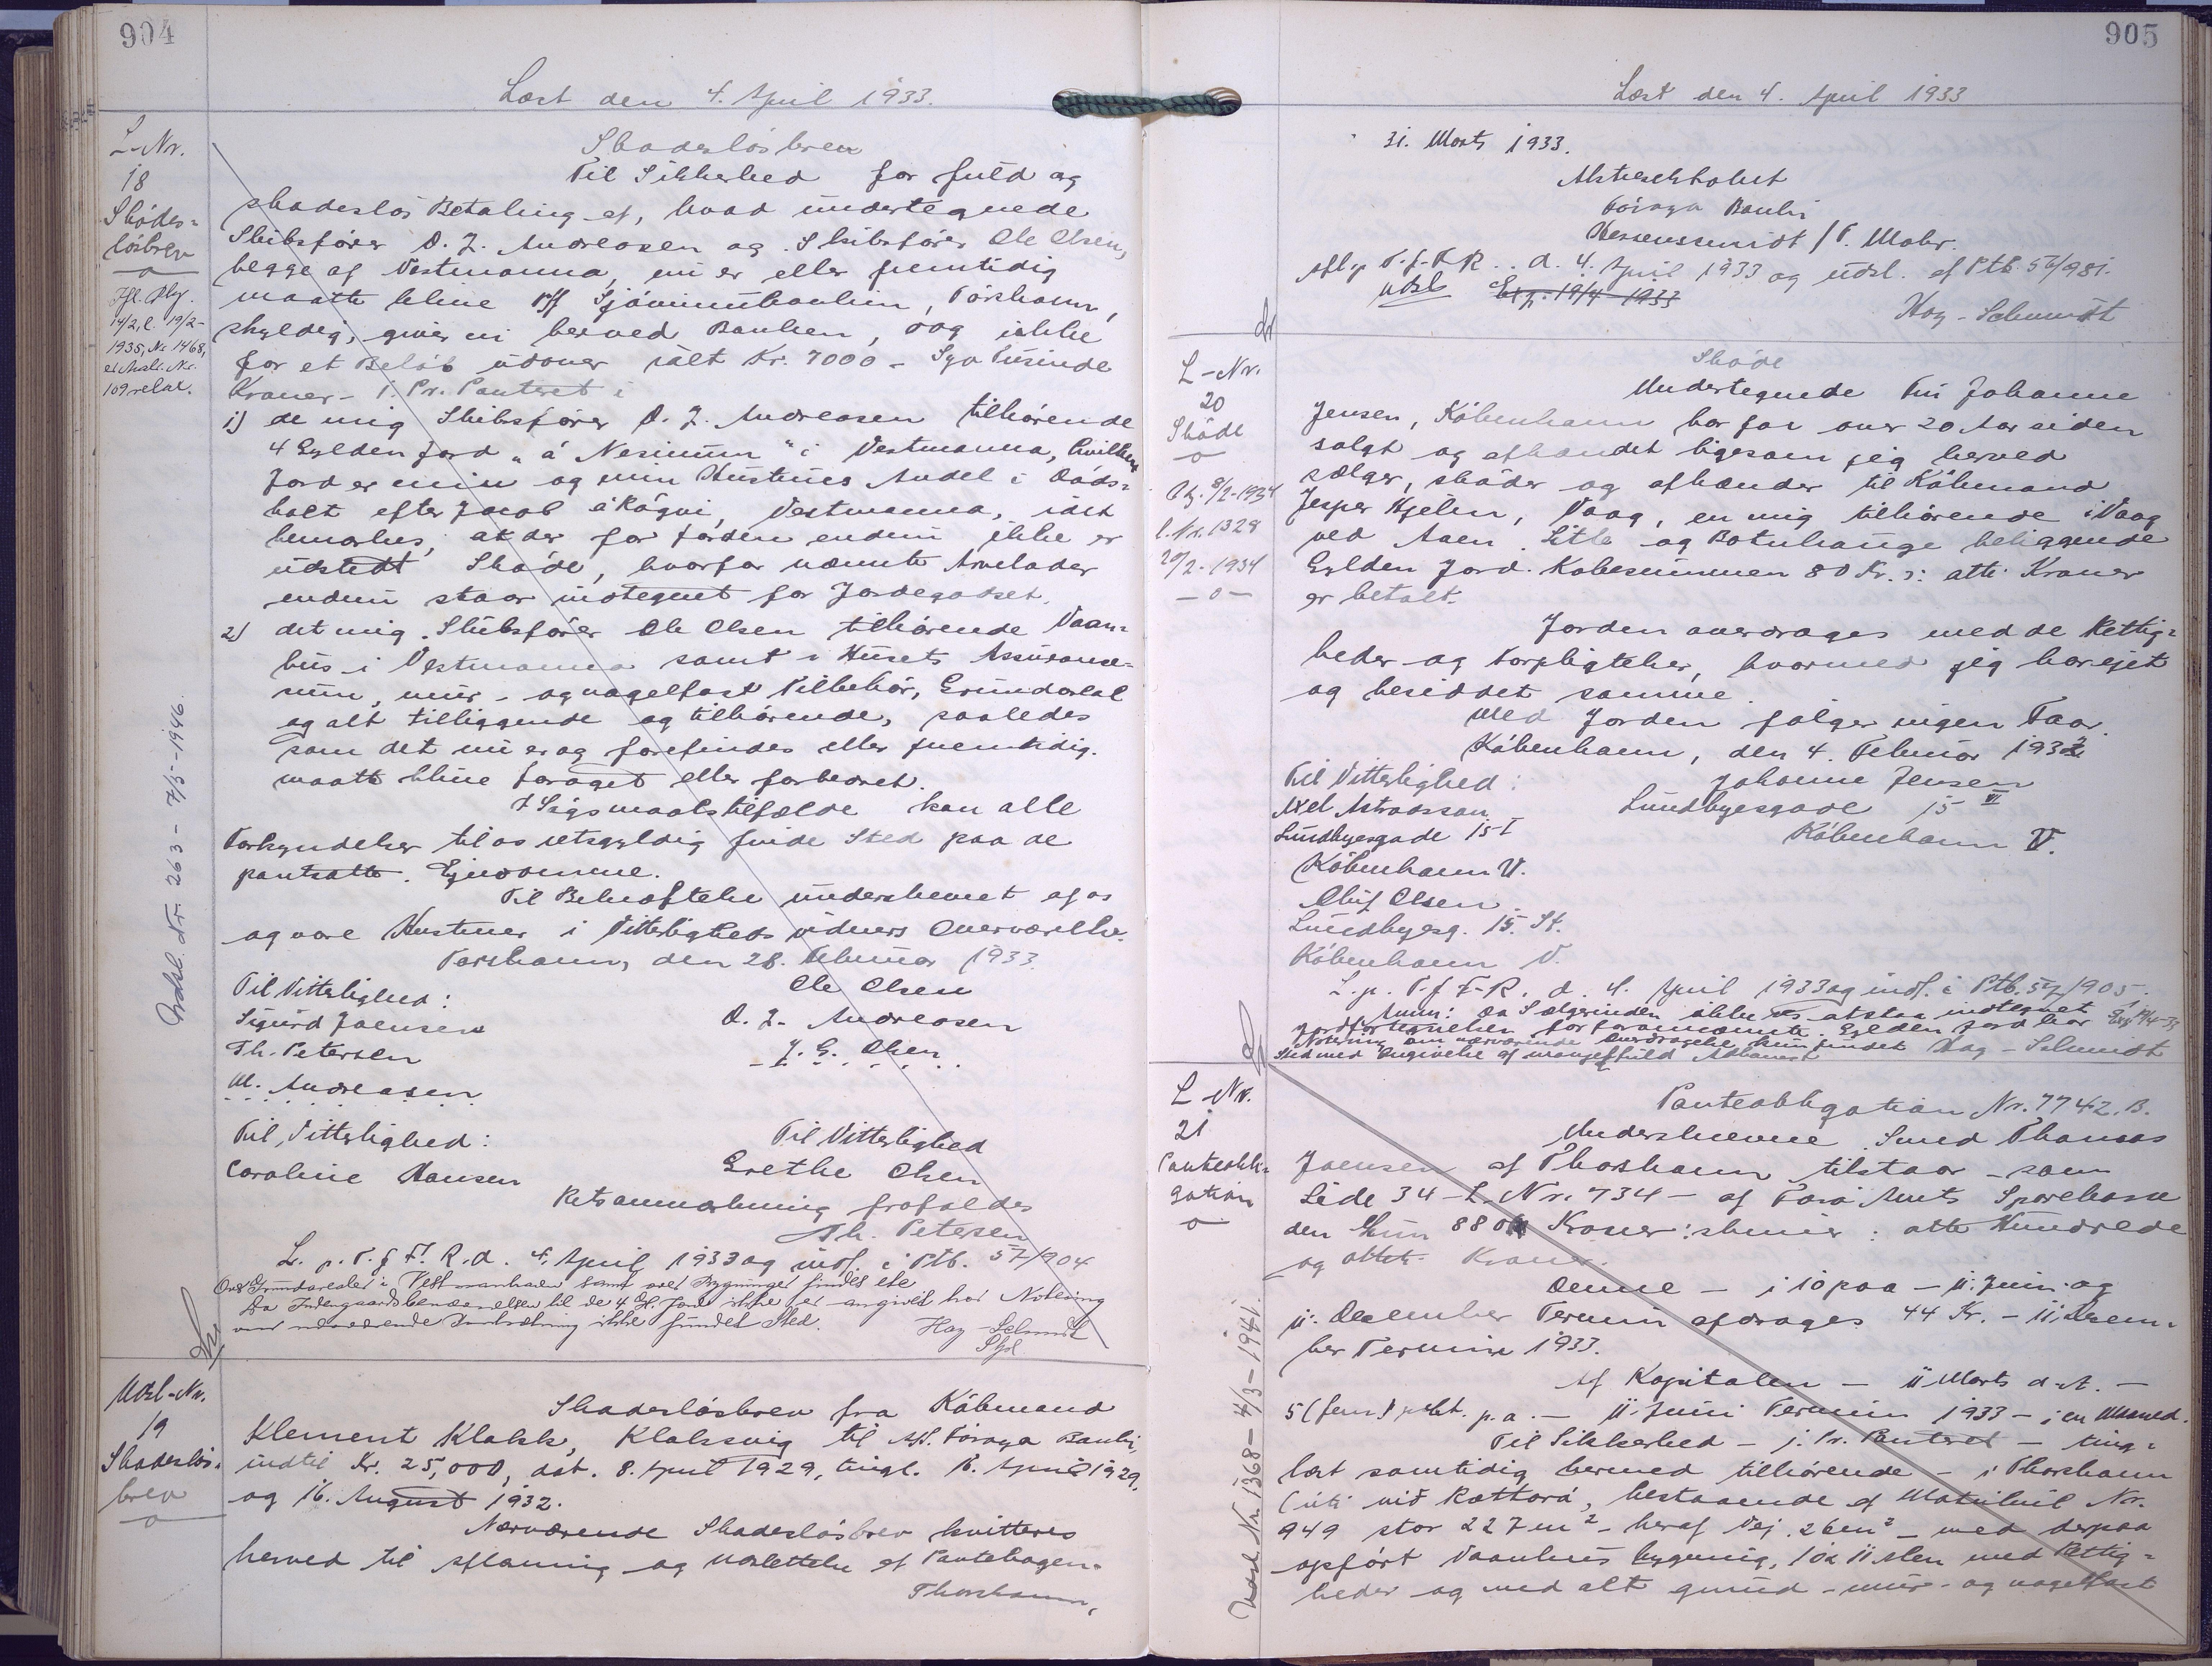 904
Læst den 4. April 1933.
L-Nr.
18
Skades=
løsbrev
14/2, l. 19/2-
1935, Nr 1468,
109 relat.
Udsl. Nr. 263 - 7/5-1946.
Skadesløsbrev
Til Sikkerhed for fuld og
skadesløs Betaling af, hvad undertegnede
Skibsfører D. J. Andreasen og Skibsfører Ole Olsen,
begge af Vestmanna, nu er eller fremtidig
maatte blive Pff Sjóvinnubankin, Tórshavn,
skyldig, giver vi herved Banken, dog ikke
for et Beløb udover ialt Kr. 7000 - Syv Tusinde
Kroner - 1. Pr. Panteret i
1) de mig Skibsfører D. J. Andreasen tilhørende
4 Gylden Jord „á Nesinum" i Vestmanna, hvilken
Jord er min og min Hustrues Andel i Døds=
boet efter Jacob á Rógvi, Vestmanna, idet
bemærkes, at der for Jorden endnu ikke er
udstedt Skøde, hvorfor nævnte Arvelader
endnu staar indtegnet for Jordegodset.
2) det mig Skibsfører Ole Olsen tilhørende Vaan=
hus i Vestmanna samt i Husets Assurance=
sum, mur- og nagelfast Tilbehør, Grundareal
og alt tilliggende og tilhørende, saaledes
som det nu er og forefindes eller fremtidig
maatte blive forøget eller forbedret.
I Søgsmaalstilfælde kan alle
Forkyndelser til os retsgyldig finde Sted paa de
pantsatte Ejendomme.
Til Bekræftelse underskrevet af os
og vore Hustruer i Vitterligheds vidners Overværelse.
Torshavn, den 28. Februar 1933.
Til Vitterlighed: Ole Olsen
Sigurd Joensen D. J. Andreasen
Th. Petersen J. G. Olsen
M. Andreasen
Til Vitterlighed: Til Vitterlighed
Caroline Hansen Grethe Olsen
Retsanmærkning frafaldes
Th. Petersen
L. p. T. f. F. R. d. 4. April 1933 og indf. i Ptb. 57/904
Da Indengaardsbenævnelsen til de 4 Gl. Jord ikke er angivet har Notering
om nærværende Pantsætning ikke fundet Sted.
Hag-Schmidt
Udsl-Nr.
19
Skadesløs=
brev
Skadesløsbrev fra Købmand
Klement Klakk, Klaksvig til A/S. Føroya Banki,
indtil Kr. 25,000, dat. 8. April 1929, tingl. 16. April 1929,
og 16. August 1932.
Nærværende Skadesløsbrev kvitteres
herved til aflæsning og Udslettelse af Pantebogen.
Thorshavn,
905
Læst den 4. April 1933
31. Marts 1933.
Aktieselskabet
Føroya Banki
Hessenschmidt / P. Mohr.
Afl. p T.f.F.R. d. 4. April 1933 og udsl. af Ptb. 56/981.
udsl Exp. 19/4-1933
Hag-Schmidt
L-Nr.
20
Skøde
l. Nr. 1328
20/2-1934
Skøde
Undertegnede Fru Johanne
Jensen, København har for over 20 Aar siden
solgt og afhændet ligesom jeg herved
sælger, skøder og afhænder til Købmand
Jesper Kjelm, Vaag, en mig tilhørende i Vaag
ved Aaen Litla og Botnhauge beliggende
Gylden Jord. Købesummen 80 Kr. ɔ: otti Kroner
er betalt.
Jorden overdrages med de Rettig=
heder og Forpligtelser, hvormed jeg har ejet
og besiddet samme.
Med Jorden følger ingen Faar.
København, den 4. Februar 1932
Til Vitterlighed: Johanne Jensen
Axel Astradsson Lundbyesgade 15 VI
Lundbyesgade 15 I København V.
København V.
Oluf Olsen
Lundbyesg. 15. St.
København V.
L. p. T. f. F. R. d. 4. April 1933 og indf. i Ptb. 57/905.
Anm: Da Sælgerinden ikke ses at staa indtegnet
Jordfortegnelsen for forannævnte Gylden Jord har Exp 19/4-33
Notering om nærværende Overdragelse kun fundet Hag-Schmidt
Sted med Angivelse af mangelfuld Adkomst
L-Nr.
21
Panteobli=
gation
Udsl. Nr. 1368 - 4/3-1941.
Panteobligation Nr. 7742. B.
Underskrevne Smed Thomas
Joensen af Thorshavn tilstaar - som
Side 34 - L. Nr. 734 - af Færø Amts Sparekasse
den Sum 880 Kroner: skriver: otte Hundrede
og ottet. Kroner.
Denne - i 10 paa - 11. Juni og
11. December Termin afdrages 44 Kr. - 11. Decem=
ber Termin 1933.
Af Kapitalen - 11 Marts d.A. -
5 (fem) pCt. p.a. - 11. Juni Termin 1933 - i en Maaned.
Til Sikkerhed - i. Pr. Panteret - ting=
læst samtidig hermed tilhørende - i Thorshavn
(úti við Kattará, bestaaende af Matrikul Nr.
949 stor 227 m² - heraf Vej 26 m² - med derpaa
opført Vaanhus bygning, 10x11 Alen med Rettig=
heder og med alt grund- mur- og nagelfast